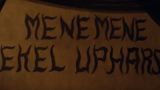 MENE MENE
EKEL UPHARS